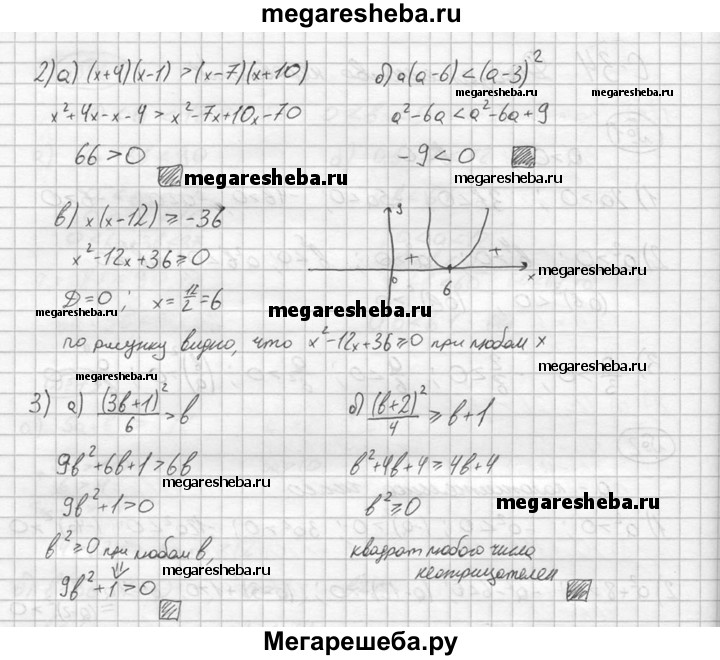 megaresheba.ru
2) а) (x+4)(x-1) > (x-7)(x+10)
x²+4x-x-4 > x²-7x+10x-70
66 > 0
megaresheba.ru
б) a(a-6) < (a-3)²
megaresheba.ru megaresheba.ru
a²-6a < a²-6a+9
-9 < 0
megaresheba.ru
в) x(x-12) ≥ -36
x²-12x+36 ≥ 0
D=0; x = 12/2 = 6
y
+ +
0 6 x
megaresheba.ru
megaresheba.ru
megaresheba.ru
по рисунку видно, что x²-12x+36 ≥ 0 при любом x
megaresheba.ru
megaresheba.ru
3) а) (3b+1)²/6 > b
9b²+6b+1 > 6b
megaresheba.ru
9b²+1 > 0
b² ≥ 0 при любом b,
⇓
megaresheba.ru
9b²+1 > 0
б) (b+2)²/4 ≥ b+1
b²+4b+4 ≥ 4b+4
b² ≥ 0
megaresheba.ru
квадрат любого числа
неотрицателен
Мегарешеба.ру